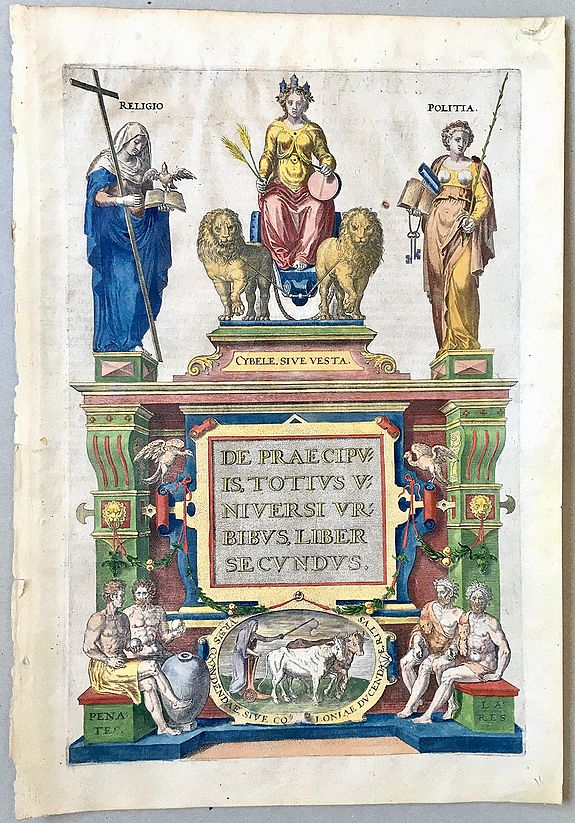 RELIGIO
POLITIA.
CYBELE. SIVE VESTA.
DE PRAECIPV:
IS, TOTIVS V:
NIVERSI VR:
BIBVS, LIBER
SECVNDVS.
VRBIS CONDENDAE SIVE COLONIAE DUCENDAE RITUS
PENA
TES.
LA:
RES